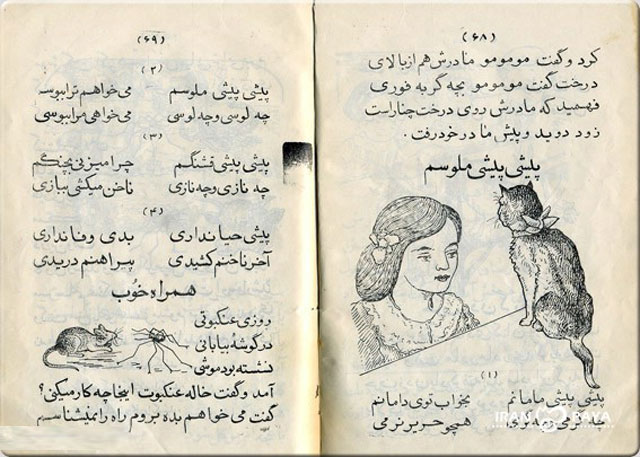 (۶۸)
کرد و گفت مومومو مادرش هم از بالای
درخت گفت مومومو بچه گربه فوری
فهمید که مادرش روی درخت چنار است
زود دوید و پیش مادر خود رفت.
پیشی پیشی ملوسم
(۱)
پیشی پیشی مامانم بخواب توی دامانم
چه گرمی و چه نرمی همچو حریر نرمی
IRAN RAYA
(۶۹)
(۲)
پیشی پیشی ملوسم می خواهم ترا ببوسم
چه لوسی و چه لوسی می خواهی مرا ببوسی
(۳)
پیشی پیشی قشنگم چرا میزنی بچنگم
چه نازی و چه نازی ناخن میکشی ببازی
(۴)
پیشی حیا نداری بدی وفا نداری
آخر ناخنم کشیدی پیراهنم دریدی
همراه خوب
روزی عنکبوتی
در گوشهٔ بیابانی
نشسته بود موشی
آمد و گفت خاله عنکبوت اینجا چه کار میکنی؟
گفت می خواهم بده بروم راه را نمیشناسم